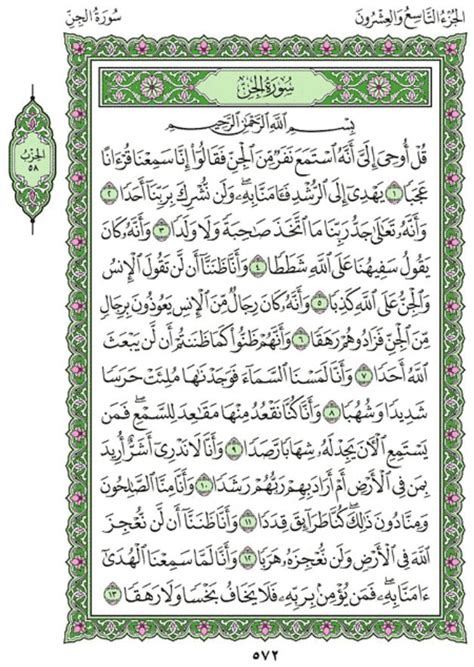 الجُزْءُ التَّاسِعُ وَالعِشْرُونَ
سُورَةُ الجِنِّ
سُورَةُ الجِنِّ
الحِزْبُ
٥٨
بِسْمِ اللَّهِ الرَّحْمَٰنِ الرَّحِيمِ
قُلْ أُوحِيَ إِلَيَّ أَنَّهُ ٱسْتَمَعَ نَفَرٌ مِّنَ ٱلْجِنِّ فَقَالُوٓا۟ إِنَّا سَمِعْنَا قُرْءَانًا
عَجَبًا ١ يَهْدِىٓ إِلَى ٱلرُّشْدِ فَـَٔامَنَّا بِهِۦ وَلَن نُّشْرِكَ بِرَبِّنَآ أَحَدًا ٢
وَأَنَّهُۥ تَعَـٰلَىٰ جَدُّ رَبِّنَا مَا ٱتَّخَذَ صَـٰحِبَةً وَلَا وَلَدًا ٣ وَأَنَّهُۥ كَانَ
يَقُولُ سَفِيهُنَا عَلَى ٱللَّهِ شَطَطًا ٤ وَأَنَّا ظَنَنَّآ أَن لَّن تَقُولَ ٱلْإِنسُ
وَٱلْجِنُّ عَلَى ٱللَّهِ كَذِبًا ٥ وَأَنَّهُۥ كَانَ رِجَالٌ مِّنَ ٱلْإِنسِ يَعُوذُونَ بِرِجَالٍ
مِّنَ ٱلْجِنِّ فَزَادُوهُمْ رَهَقًا ٦ وَأَنَّهُمْ ظَنُّوا۟ كَمَا ظَنَنتُمْ أَن لَّن يَبْعَثَ
ٱللَّهُ أَحَدًا ٧ وَأَنَّا لَمَسْنَا ٱلسَّمَآءَ فَوَجَدْنَـٰهَا مُلِئَتْ حَرَسًا
شَدِيدًا وَشُهُبًا ٨ وَأَنَّا كُنَّا نَقْعُدُ مِنْهَا مَقَـٰعِدَ لِلسَّمْعِ ۖ فَمَن
يَسْتَمِعِ ٱلْـَٔانَ يَجِدْ لَهُۥ شِهَابًا رَّصَدًا ٩ وَأَنَّا لَا نَدْرِىٓ أَشَرٌّ أُرِيدَ
بِمَن فِى ٱلْأَرْضِ أَمْ أَرَادَ بِهِمْ رَبُّهُمْ رَشَدًا ١٠ وَأَنَّا مِنَّا ٱلصَّـٰلِحُونَ
وَمِنَّا دُونَ ذَٰلِكَ ۖ كُنَّا طَرَآئِقَ قِدَدًا ١١ وَأَنَّا ظَنَنَّآ أَن لَّن نُّعْجِزَ
ٱللَّهَ فِى ٱلْأَرْضِ وَلَن نُّعْجِزَهُۥ هَرَبًا ١٢ وَأَنَّا لَمَّا سَمِعْنَا ٱلْهُدَىٰٓ
ءَامَنَّا بِهِۦ ۖ فَمَن يُؤْمِنۢ بِرَبِّهِۦ فَلَا يَخَافُ بَخْسًا وَلَا رَهَقًا ١٣
٥٧٢